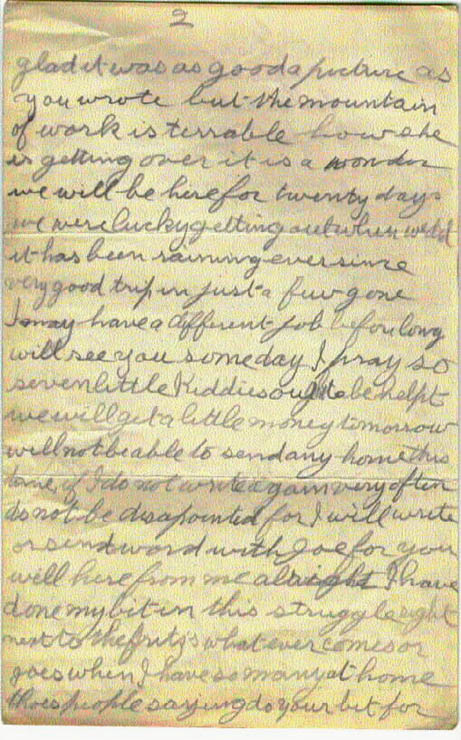 2
glad it was as good a picture as
you wrote but the mountain
of work is terrable how she
is getting over it is a wonder
we will be here for twenty days
we were lucky getting out when we did
it has been raining ever since
very good trip in just a few gone
I may have a different job before long
will see you some day I pray so
seven little Kiddies ought to be helpt
we will get a little money tomorrow
will not be able to send any home this
time, if I do not write again very often
do not be disapointed for I will write
or send word with Joe for you
will here from me alright I have
done my bit in this struggle right
next to the fritjs what ever comes or
goes when I have so many at home
thoes people saying do your bit for